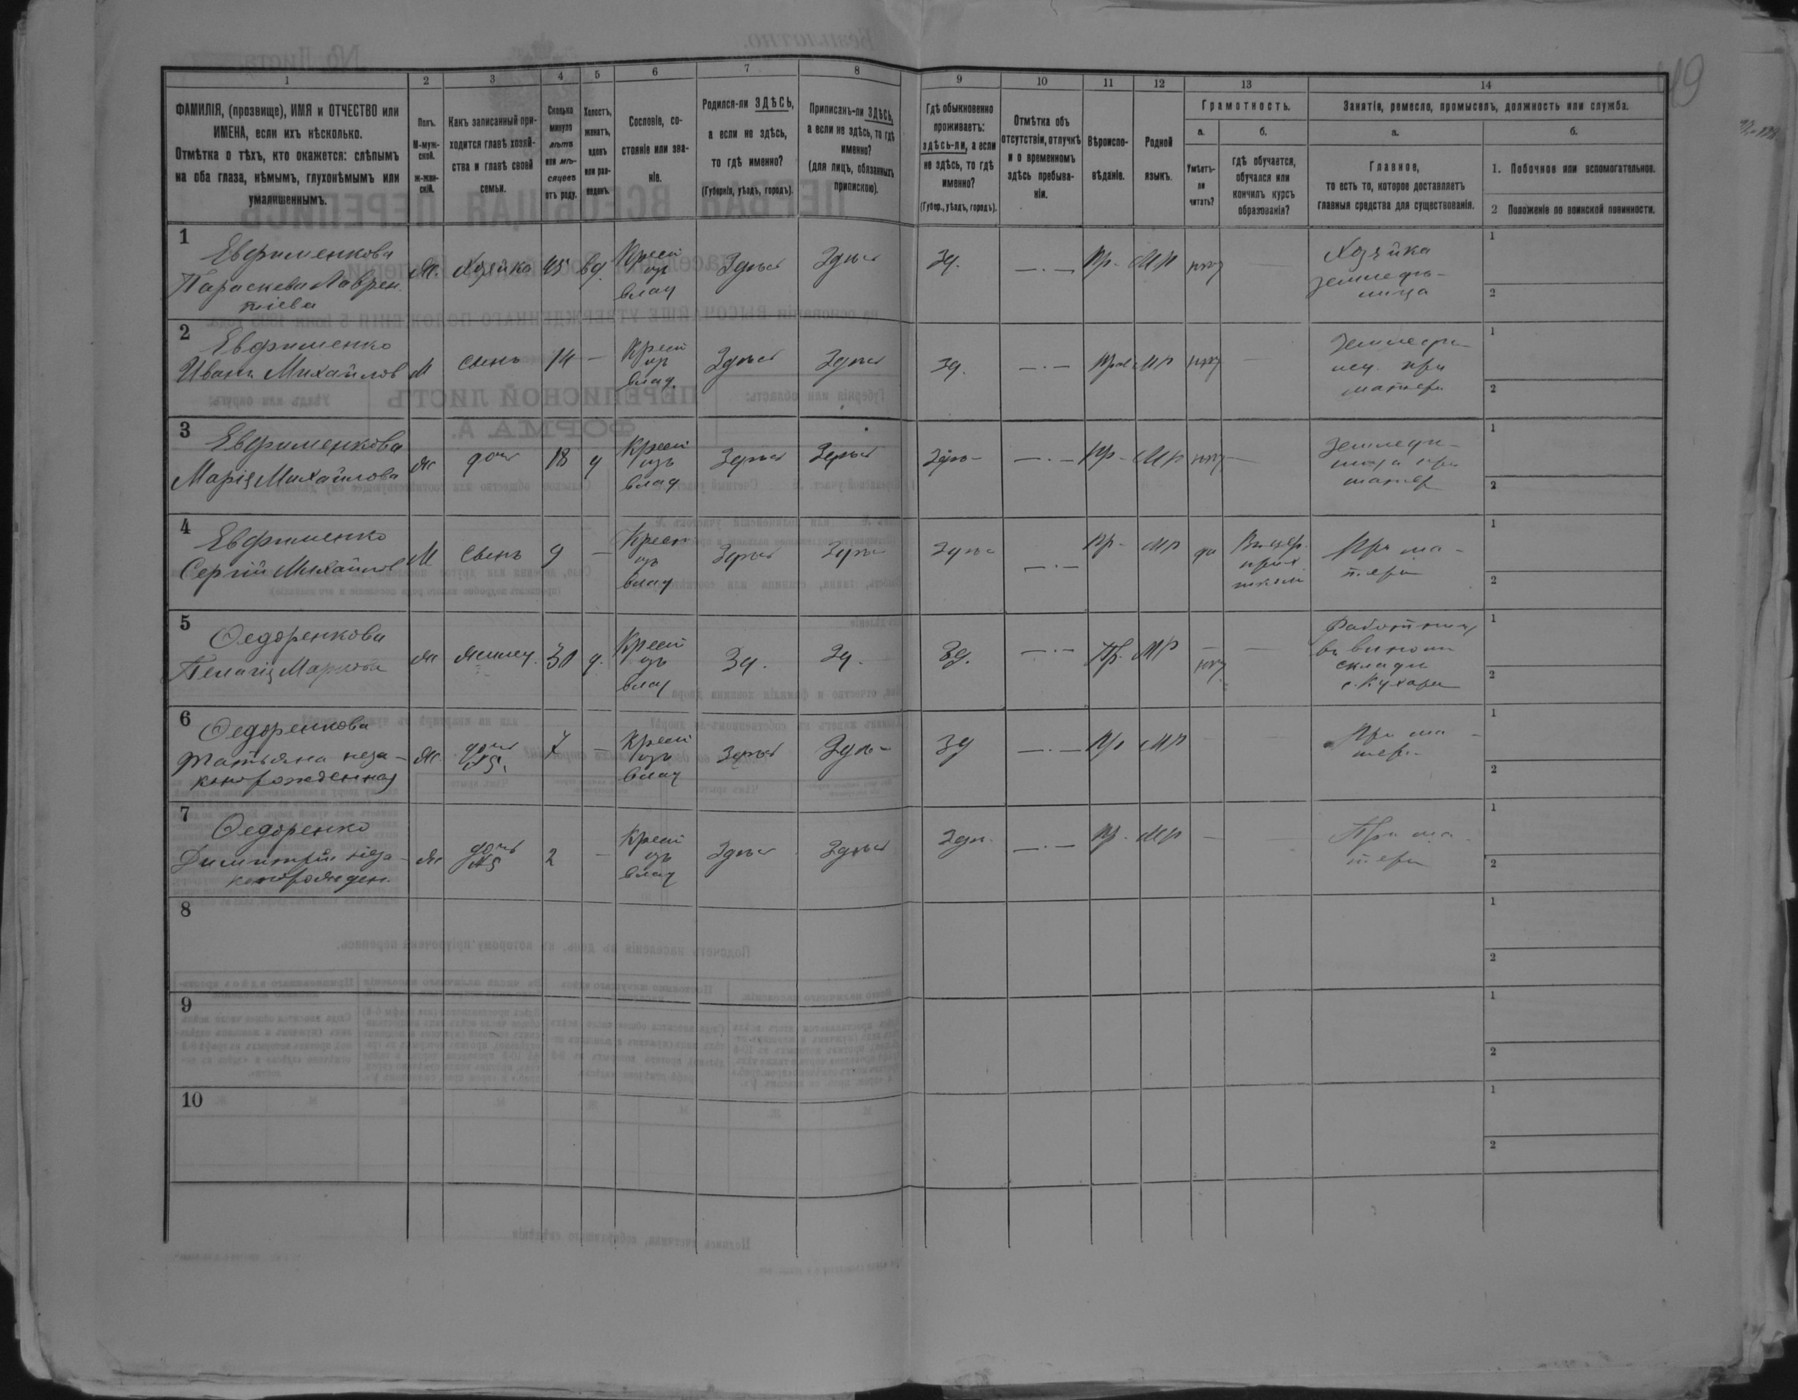 49
1
2
3
4
5
6
7
8
9
10
11
12
13
14
ФАМИЛІЯ, (прозвище), ИМЯ и ОТЧЕСТВО или
ИМЕНА, если ихъ нѣсколько.
Отмѣтка о тѣхъ, кто окажется: слѣпымъ
на оба глаза, нѣмымъ, глухонѣмымъ или
умалишеннымъ.
Полъ.
М-муж-
ской.
ж-жен-
скій.
Какъ записанный при-
ходится главѣ хозяй-
ства и главѣ своей
семьи.
Сколько
минуло
лѣтъ
или мѣ-
сяцевъ
отъ роду.
Холостъ,
женатъ,
вдовъ
или раз-
веденъ.
Сословіе, со-
стояніе или зва-
ніе.
Родился-ли ЗДѢСЬ,
а если не здѣсь,
то гдѣ именно?
(Губернія, уѣздъ, городъ).
Приписанъ-ли ЗДѢСЬ,
а если не здѣсь, то гдѣ
именно?
(для лицъ, обязанныхъ
припискою).
Гдѣ обыкновенно
проживаетъ:
здѣсь-ли, а если
не здѣсь, то гдѣ
именно?
(Губер., уѣздъ, городъ).
Отмѣтка объ
отсутствіи, отлучкѣ
и о временномъ
здѣсь пребыва-
ніи.
Вѣроиспо-
вѣданіе.
Родной
языкъ.
Грамотность.
а.
Умѣетъ-
ли
читать?
б.
гдѣ обучается,
обучался или
кончилъ курсъ
образованія?
Занятіе, ремесло, промыселъ, должность или служба.
а.
Главное,
то есть то, которое доставляетъ
главныя средства для существованія.
б.
1. Побочное или вспомогательное.
2 Положеніе по воинской повинности.
1
Евфименкова
Параскева Лаврен
тіева
Ж.
Хозяйка
45
вд.
Крест
изъ
влад
Здѣсь
Здѣсь
Зд.
— . —
Пр.
МР
нѣтъ
Хозяйка
земледѣ-
лица
1
2
2
Евфименко
Иванъ Михайловъ
М
сынъ
14
—
Крест
изъ
влад.
Здѣсь
Здѣсь
Зд.
— . —
МР
нѣтъ
при
матери
1
2
3
Евфименкова
Марія Михайлова
Ж
дочь
18
д
Крест
изъ
влад
Здѣсь
Здѣсь
Здѣ-
— . —
Пр-
МР
нѣтъ
при
матер
1
2
4
Евфименко
Сергій Михайловъ
М
сынъ
9
—
Крест
изъ
влад
Здѣсь
Здѣсь
Здѣс
— . —
Пр-
МР
да
школѣ
При ма-
тери
1
2
5
Федоренкова
Пелагія Маркова
Ж
30
д.
Крест
изъ
влад
Зд.
Зд.
Зд.
— . —
Пр.
МР
нѣтъ
въ
складѣ
с. Кухари
1
2
6
Федоренкова
Татьяна неза-
конорожденная
Ж
дочь
№5.
7
—
Крест
изъ
влад
Здѣсь
Здѣ-
Зд
— . —
Пр
МР
При ма-
тери
1
2
7
Федоренко
Димитрій неза-
коннорожден.
Ж
дочь
№5
2
—
Крест
изъ
влад
Здѣсь
Здѣсь
Здѣ.
Пр.
МР
—
При ма-
тери
1
2
8
1
2
9
1
2
10
1
2